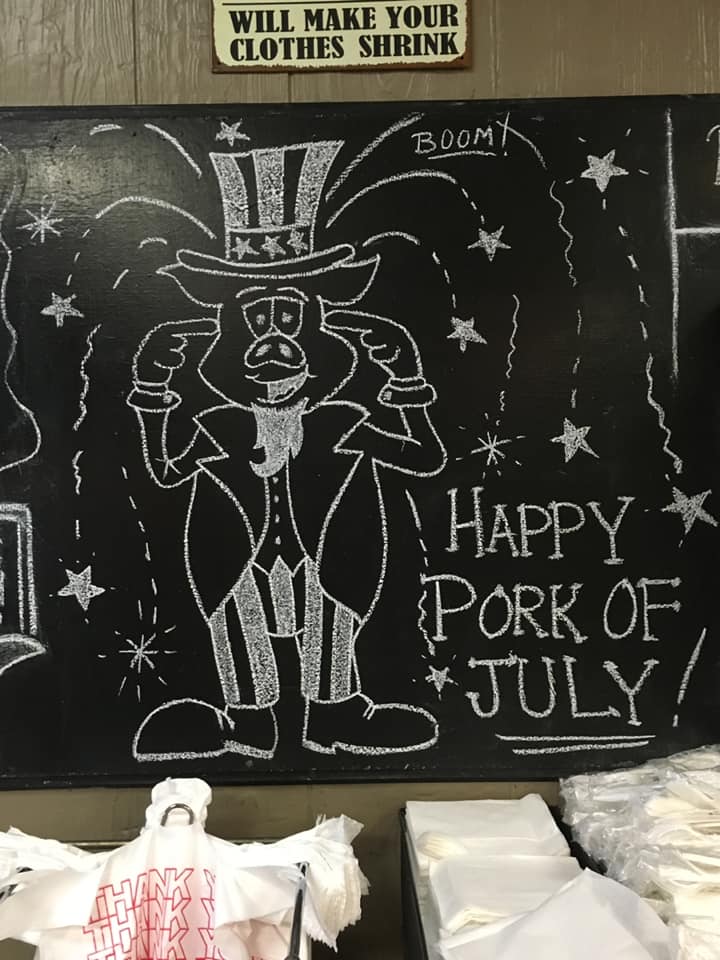 WILL MAKE YOUR
CLOTHES SHRINK
BOOM!
HAPPY
PORK OF
JULY!
THANK